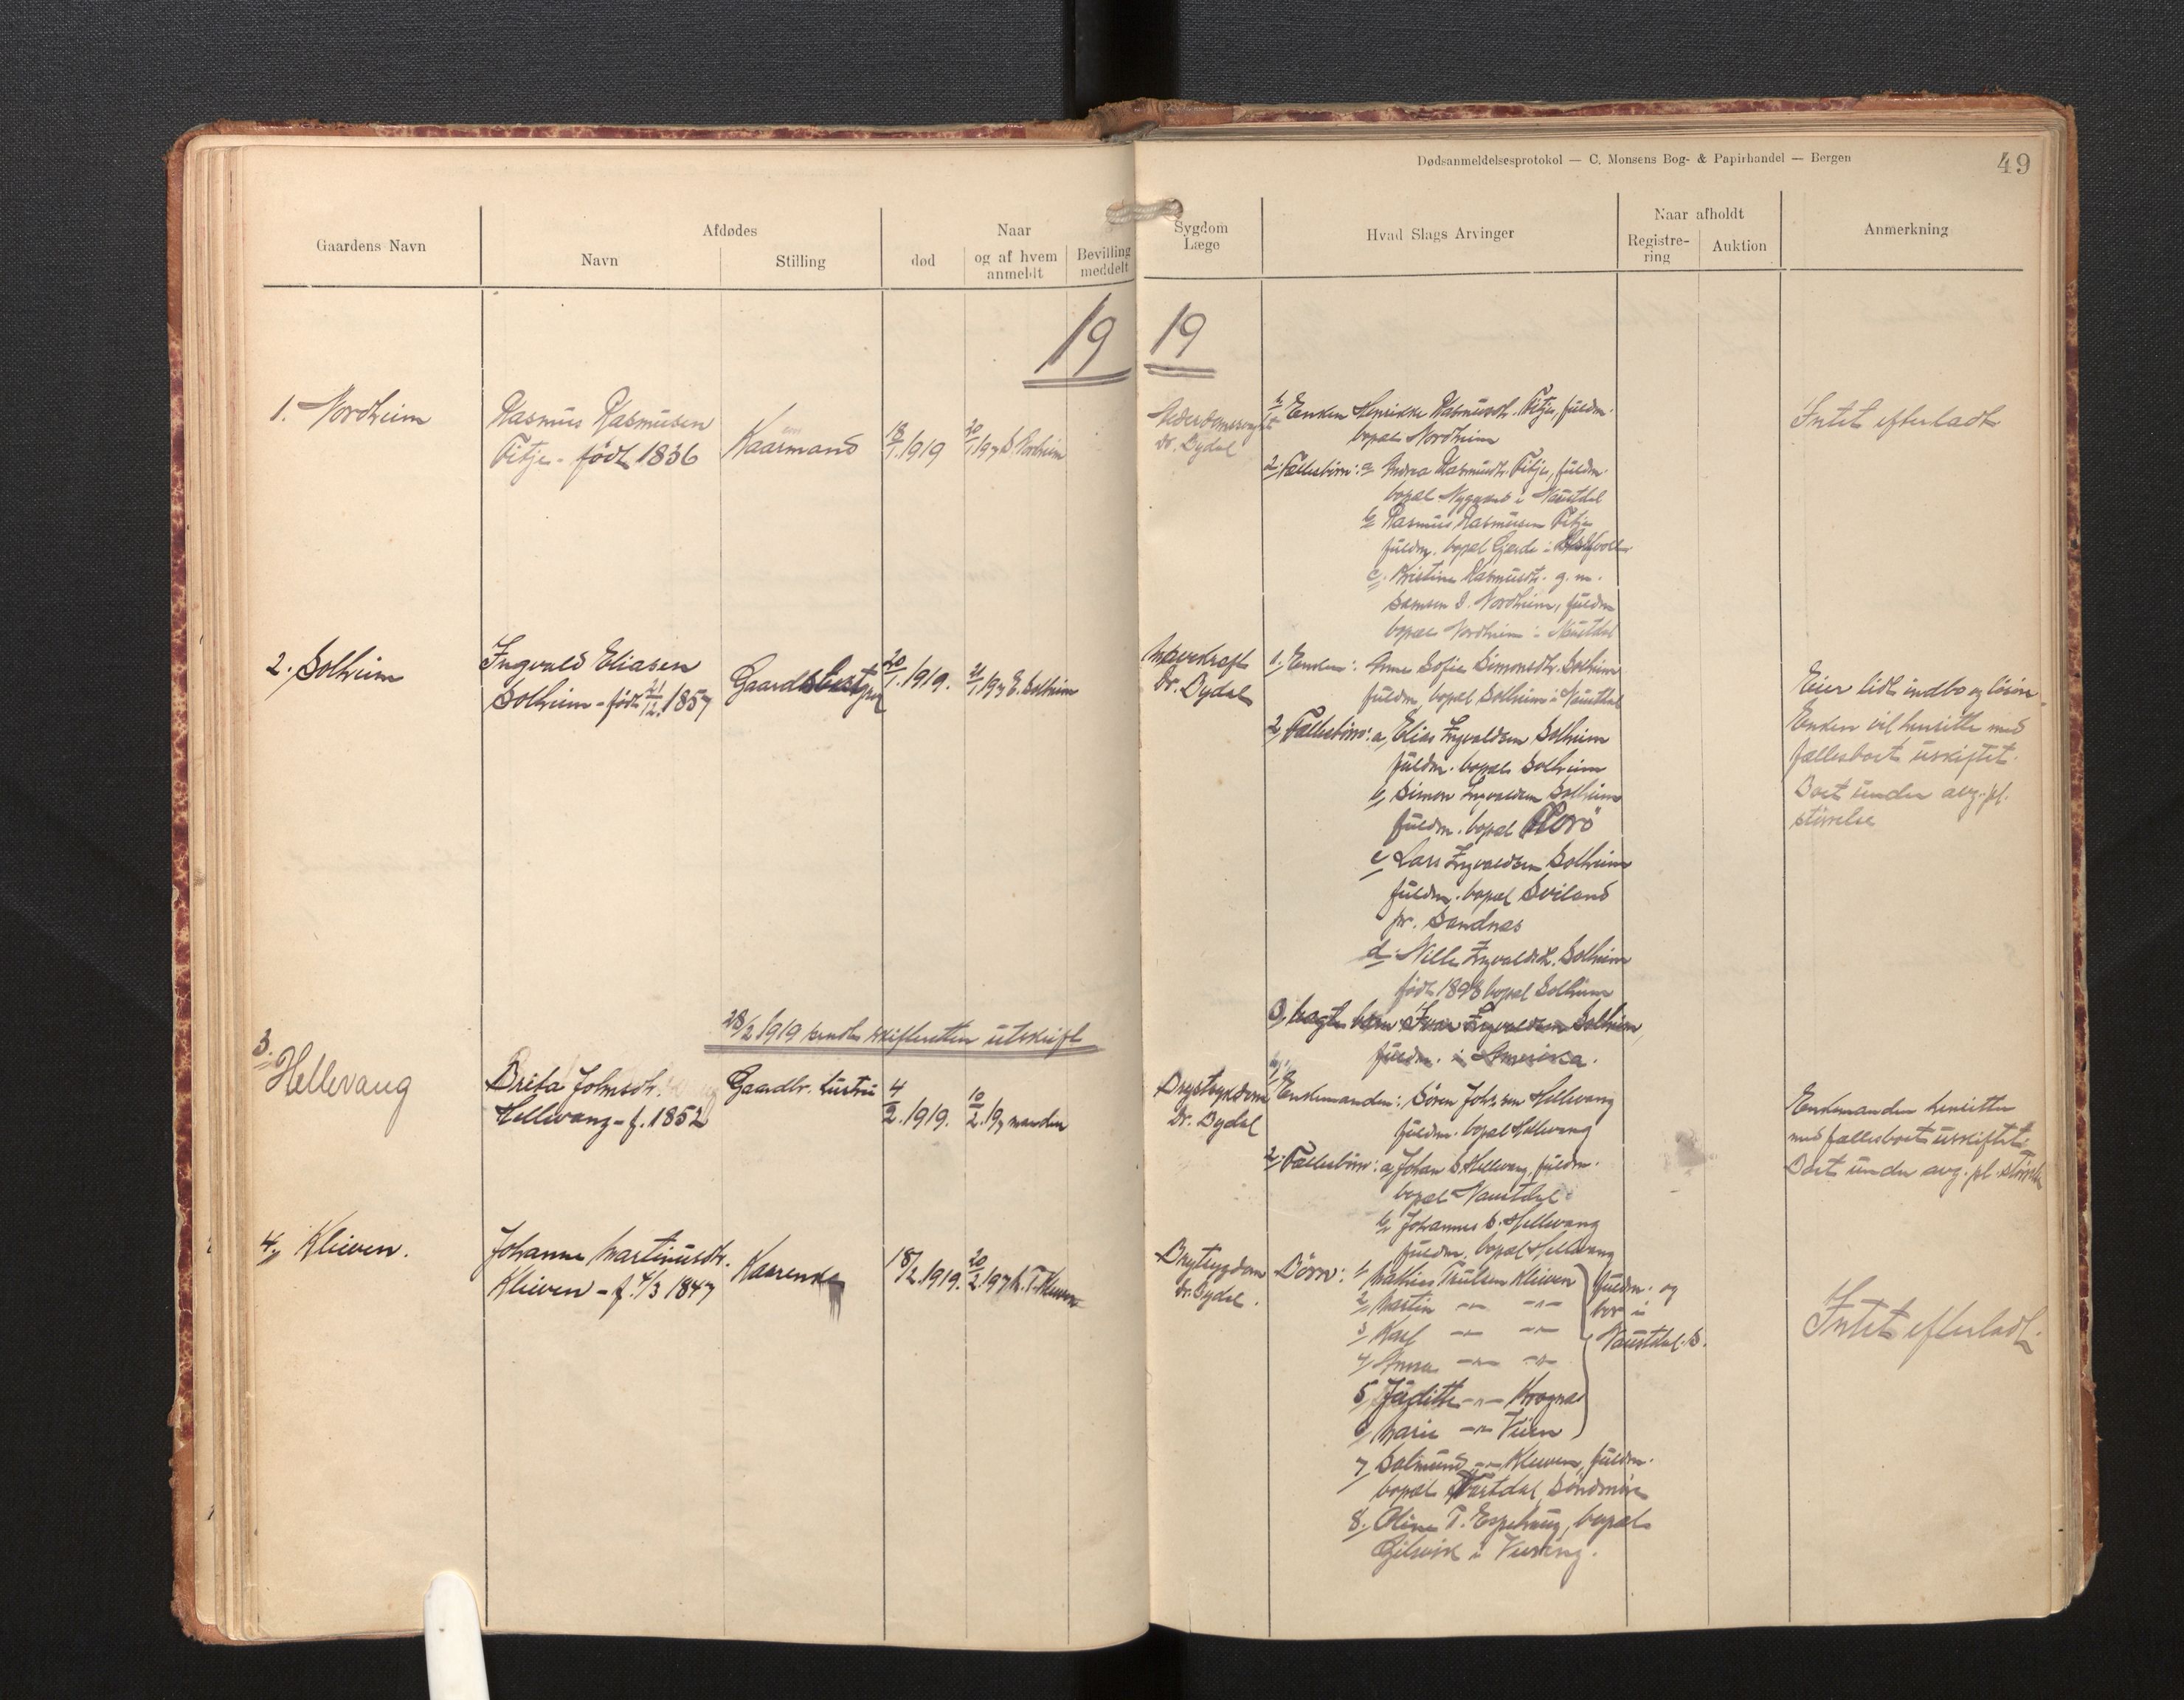 Dødsanmeldelsesprotokol — C. Monsens Bog- & Papirhandel — Bergen
49
Gaardens Navn
Afdødes
Navn
Stilling
Naar
død
og af hvem anmeldt
Bevilling meddelt
Sygdom
Læge
Hvad Slags Arvinger
Naar afholdt
Registre-
ring
Auktion
Anmerkning
19 19
1. Nordheim
Rasmus Rasmusen
Fitje - født 1836
Kaarmand
18/1.1919
20/1.19 S. Nordheim
Alderdomssvaghet
Dr. Dydal
1/ Enken Henrikke Rasmusdtr. Fitje, fuldm.
bopæl Nordheim
2/ Fællesbörn: a/ Andrea Rasmusdtr. Fitje, fuldm.
bopæl i Naustdal
b/ Rasmus Rasmusen Fitje
fuldm. bopæl Gjerde i
c/ Kristine Rasmusdtr. g. m.
Samson S. Nordheim, fuldm
bopæl Nordheim i Naustdal
Intet efterladt
2. Solheim
Ingvald Eliasen
Solheim - født 21/12.1857
20/1.1919.
21/1.19 E. Solheim
Mavekræft
Dr. Dydal
1/ Enken: Anne Sofie Simonsdtr. Solheim
fuldm, bopæl Solheim i Naustdal
2/ Fællesbörn: a, Elias Ingvaldsen Solheim
fuldm. bopæl Solheim
b, Simon Ingvaldsen Solheim
fuldm. bopæl Florö
c/ Lars Ingvaldsen Solheim
fuldm. bopæl Sviland
pr. Sandnæs
d. Nille Ingvaldsdt. Solheim
født 1898 bopæl Solheim
3, Ingvaldsen Solheim,
fuldm. i Amerika.
Eier lidt indbo og lösöre.
Enken vil hensitte med
fællesboet uskiftet.
Boet under avg. pl.
störrelse
28/2 1919 sendt skifteretten utskrift
3.
Hellevang
Brita Johnsdtr.
Hellevang - f. 1852
Gaardbr. hustru
4/2.1919.
10/2.19 manden
Brystsykdom
Dr. Dydal
1/ Enkemanden: Sören Johnsen Hellevang
fuldm. bopæl Hellevang
2/ Fællesbörn: a, Johan S. Hellevang, fuldm.
bopæl Naustdal
b, Johannes S. Hellevang
fuldm. bopæl Hellevang
Enkemanden hensitter
med fællesboet uskiftet.
Boet under avg. pl. störrelse
4, Kleiven.
Johanne Martinusdtr.
Kleiven - f. 4/3 1847
Kaarenke
18/2.1919.
20/2.19 M. T. Kleiven
Brystsygdom
Dr. Dydal.
Börn: 1, Mathias Paulsen Kleiven
2, Martin -"- -"-
3, Karl -"- -"-
4, Anna -"- -"-
5, Juditte -"- Krognæs
6, Marie -"- Vien
fuldm. og
bor i
Naustdal. S.
7, Salmund -"- Kleiven, fuldm.
bopæl Vartdal, Söndmöre
8. Oline T. Espehaug, bopæl
Gilsvik i Vevring.
Intet efterladt.